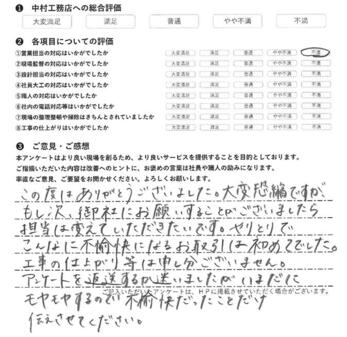 ❶ 中村工務店への総合評価
大変満足 満足 普通 やや不満 不満
❷ 各項目についての評価
①営業担当の対応はいかがでしたか 大変満足 満足 普通 やや不満 不満
②現場監督の対応はいかがでしたか 大変満足 満足 普通 やや不満 不満
③設計担当の対応はいかがでしたか 大変満足 満足 普通 やや不満 不満
④社員大工の対応はいかがでしたか 大変満足 満足 普通 やや不満 不満
⑤職人の対応はいかがでしたか 大変満足 満足 普通 やや不満 不満
⑥社内の電話対応等はいかがでしたか 大変満足 満足 普通 やや不満 不満
⑦現場の整理整頓や掃除はきちんとされていましたか 大変満足 満足 普通 やや不満 不満
⑧工事の仕上がりはいかがでしたか 大変満足 満足 普通 やや不満 不満
❸ ご意見・ご感想
本アンケートはより良い現場を創るため、より良いサービスを提供することを目的としております。
ご指摘いただいた内容は改善へのヒントに、お褒めの言葉は社員や職人の励みになります。
率直なご意見、ご要望をお聞かせください。よろしくお願いします。
この度はありがとうございました。大変恐縮ですが
もし次、御社にお願いすることがございましたら
担当は変えていただきたいです。やりとりで
こんなに不愉快になるお取引は初めてでした。
工事の仕上がり等は申し分ございません。
アンケートを返送するか迷いましたがいまだに
モヤモヤするので不愉快だったことだけ
ご記入いただいたアンケートは、HPに掲載させていただく場合がございます。
伝えさせてください。